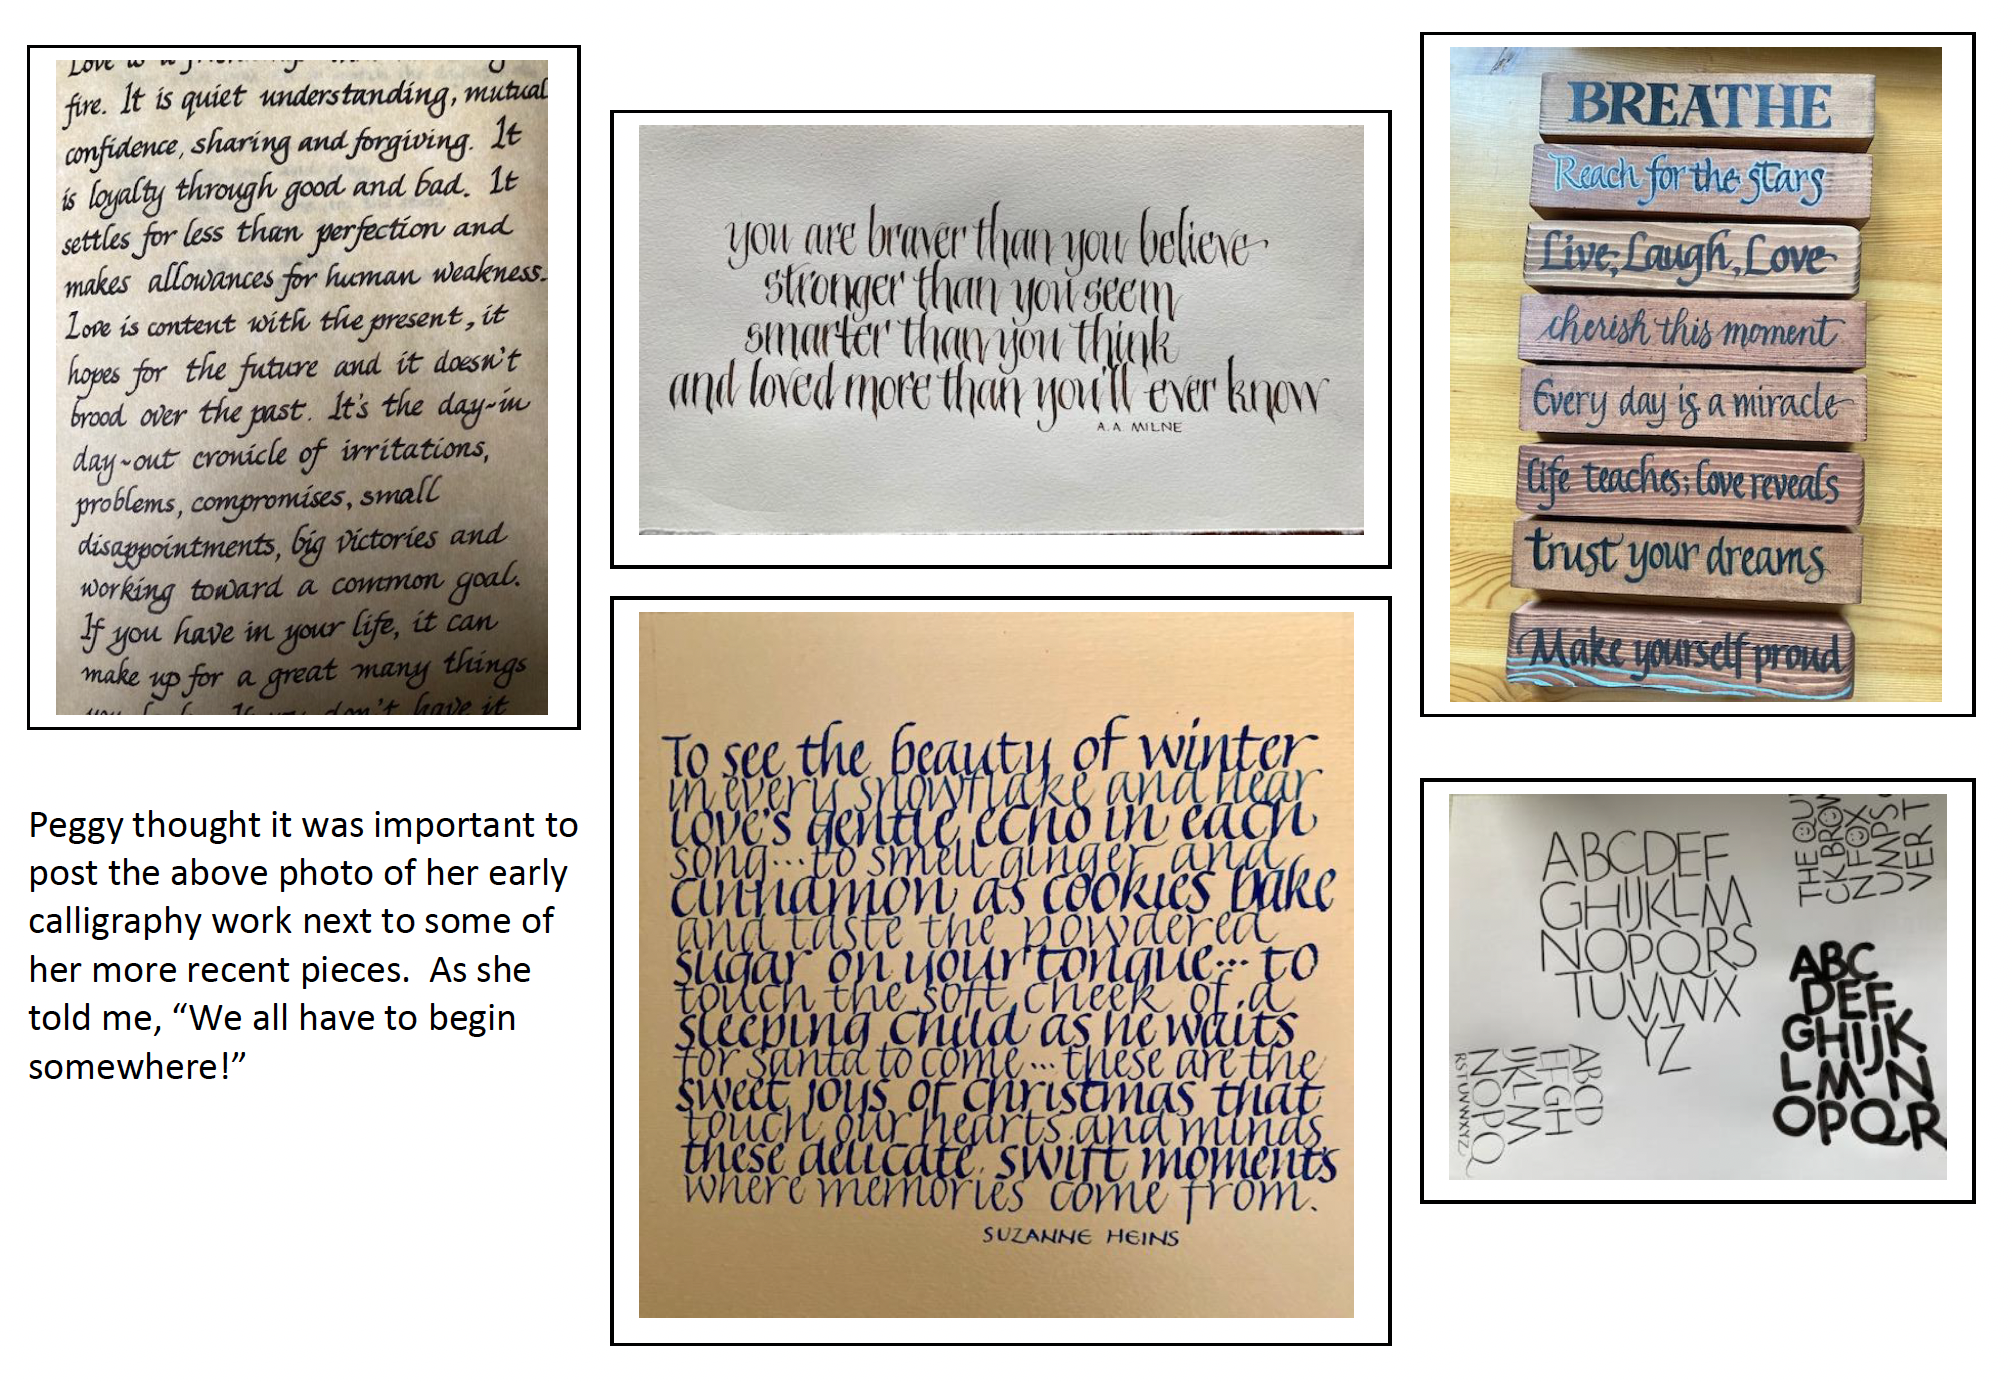 fire. It is quiet understanding, mutual
confidence, sharing and forgiving. It
is loyalty through good and bad. It
settles for less than perfection and
makes allowances for human weakness.
Love is content with the present, it
hopes for the future and it doesn't
brood over the past. It's the day~in
day~out cronicle of irritations,
problems, compromises, small
disappointments, big victories and
working toward a common goal.
If you have in your life, it can
make up for a great many things
don't have it
Peggy thought it was important to
post the above photo of her early
calligraphy work next to some of
her more recent pieces. As she
told me, “We all have to begin
somewhere!”
you are braver than you believe
stronger than you seem
smarter than you think
and loved more than you'll ever know
A.A. MILNE
To see the beauty of winter
in every snowflake and hear
love's gentle echo in each
song... to smell ginger and
cinnamon as cookies bake
and taste the powdered
sugar on your tongue... to
touch the soft cheek of a
sleeping child as he waits
for santa to come... these are the
sweet joys of christmas that
touch our hearts and minds
these delicate, swift moments
where memories come from.
SUZANNE HEINS
BREATHE
Reach for the stars
Live, Laugh, Love
cherish this moment
Every day is a miracle
life teaches; love reveals
trust your dreams
Make yourself proud
ABCDEF
GHIJKLM
NOPQRS
TUVWX
YZ
THE QUI
CK BROW
N FOX
JUMPS
VER T
ABC
DEF
GHIJK
LMN
OPQR
ABCD
EFGH
IJKLM
NOPQ
RSTUVWXYZ